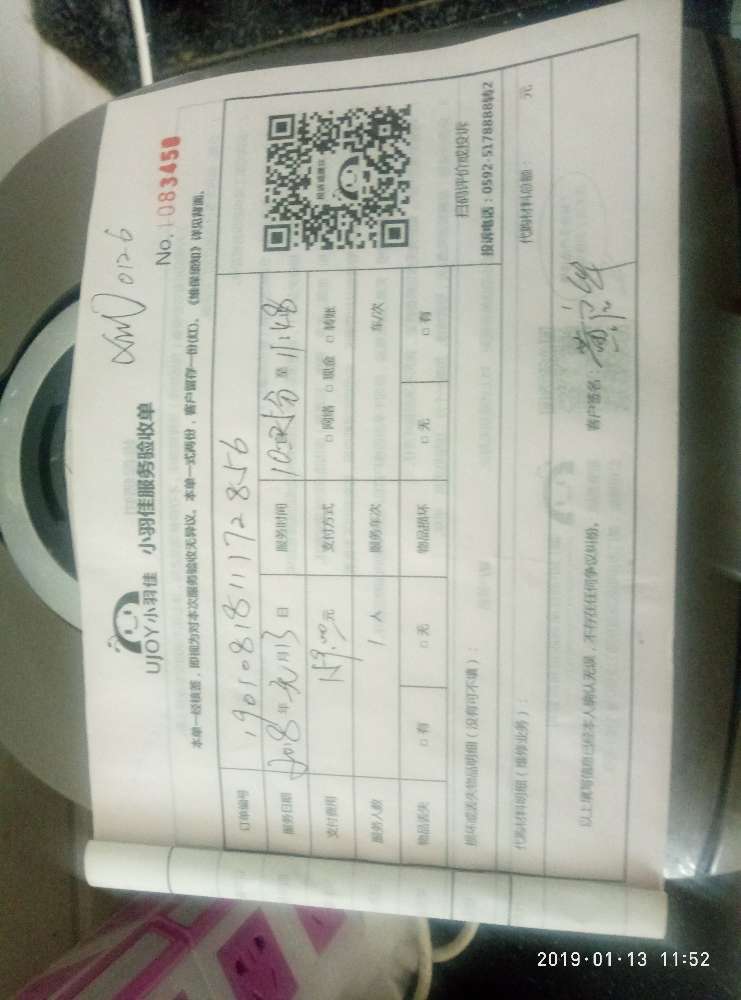 XM 0126
UJOY小羽佳 小羽佳服务验收单
No. 1083450
本单一经核签，即视为对本次服务验收无异议。本单一式两份，客户留存一份(红)。《维保须知》详见背面。
订单编号 190108181117 2856
服务日期 2018年元月13日 服务时间 至 11:48
支付费用 159.00元 支付方式 □网络 □现金 □转账
服务人数 1人 服务车次 车/次
物品丢失 □有 □无 物品损坏 □无 □有
投诉或建议
扫码评价或投诉
投诉电话：0592-5178888转2
损坏或丢失物品明细（没有可不填）：
代购材料明细（维修业务）： 代购材料总额： 元
以上填写信息已经本人确认无误，不存在任何争议纠纷。 客户签名：
2019·01·13 11:52